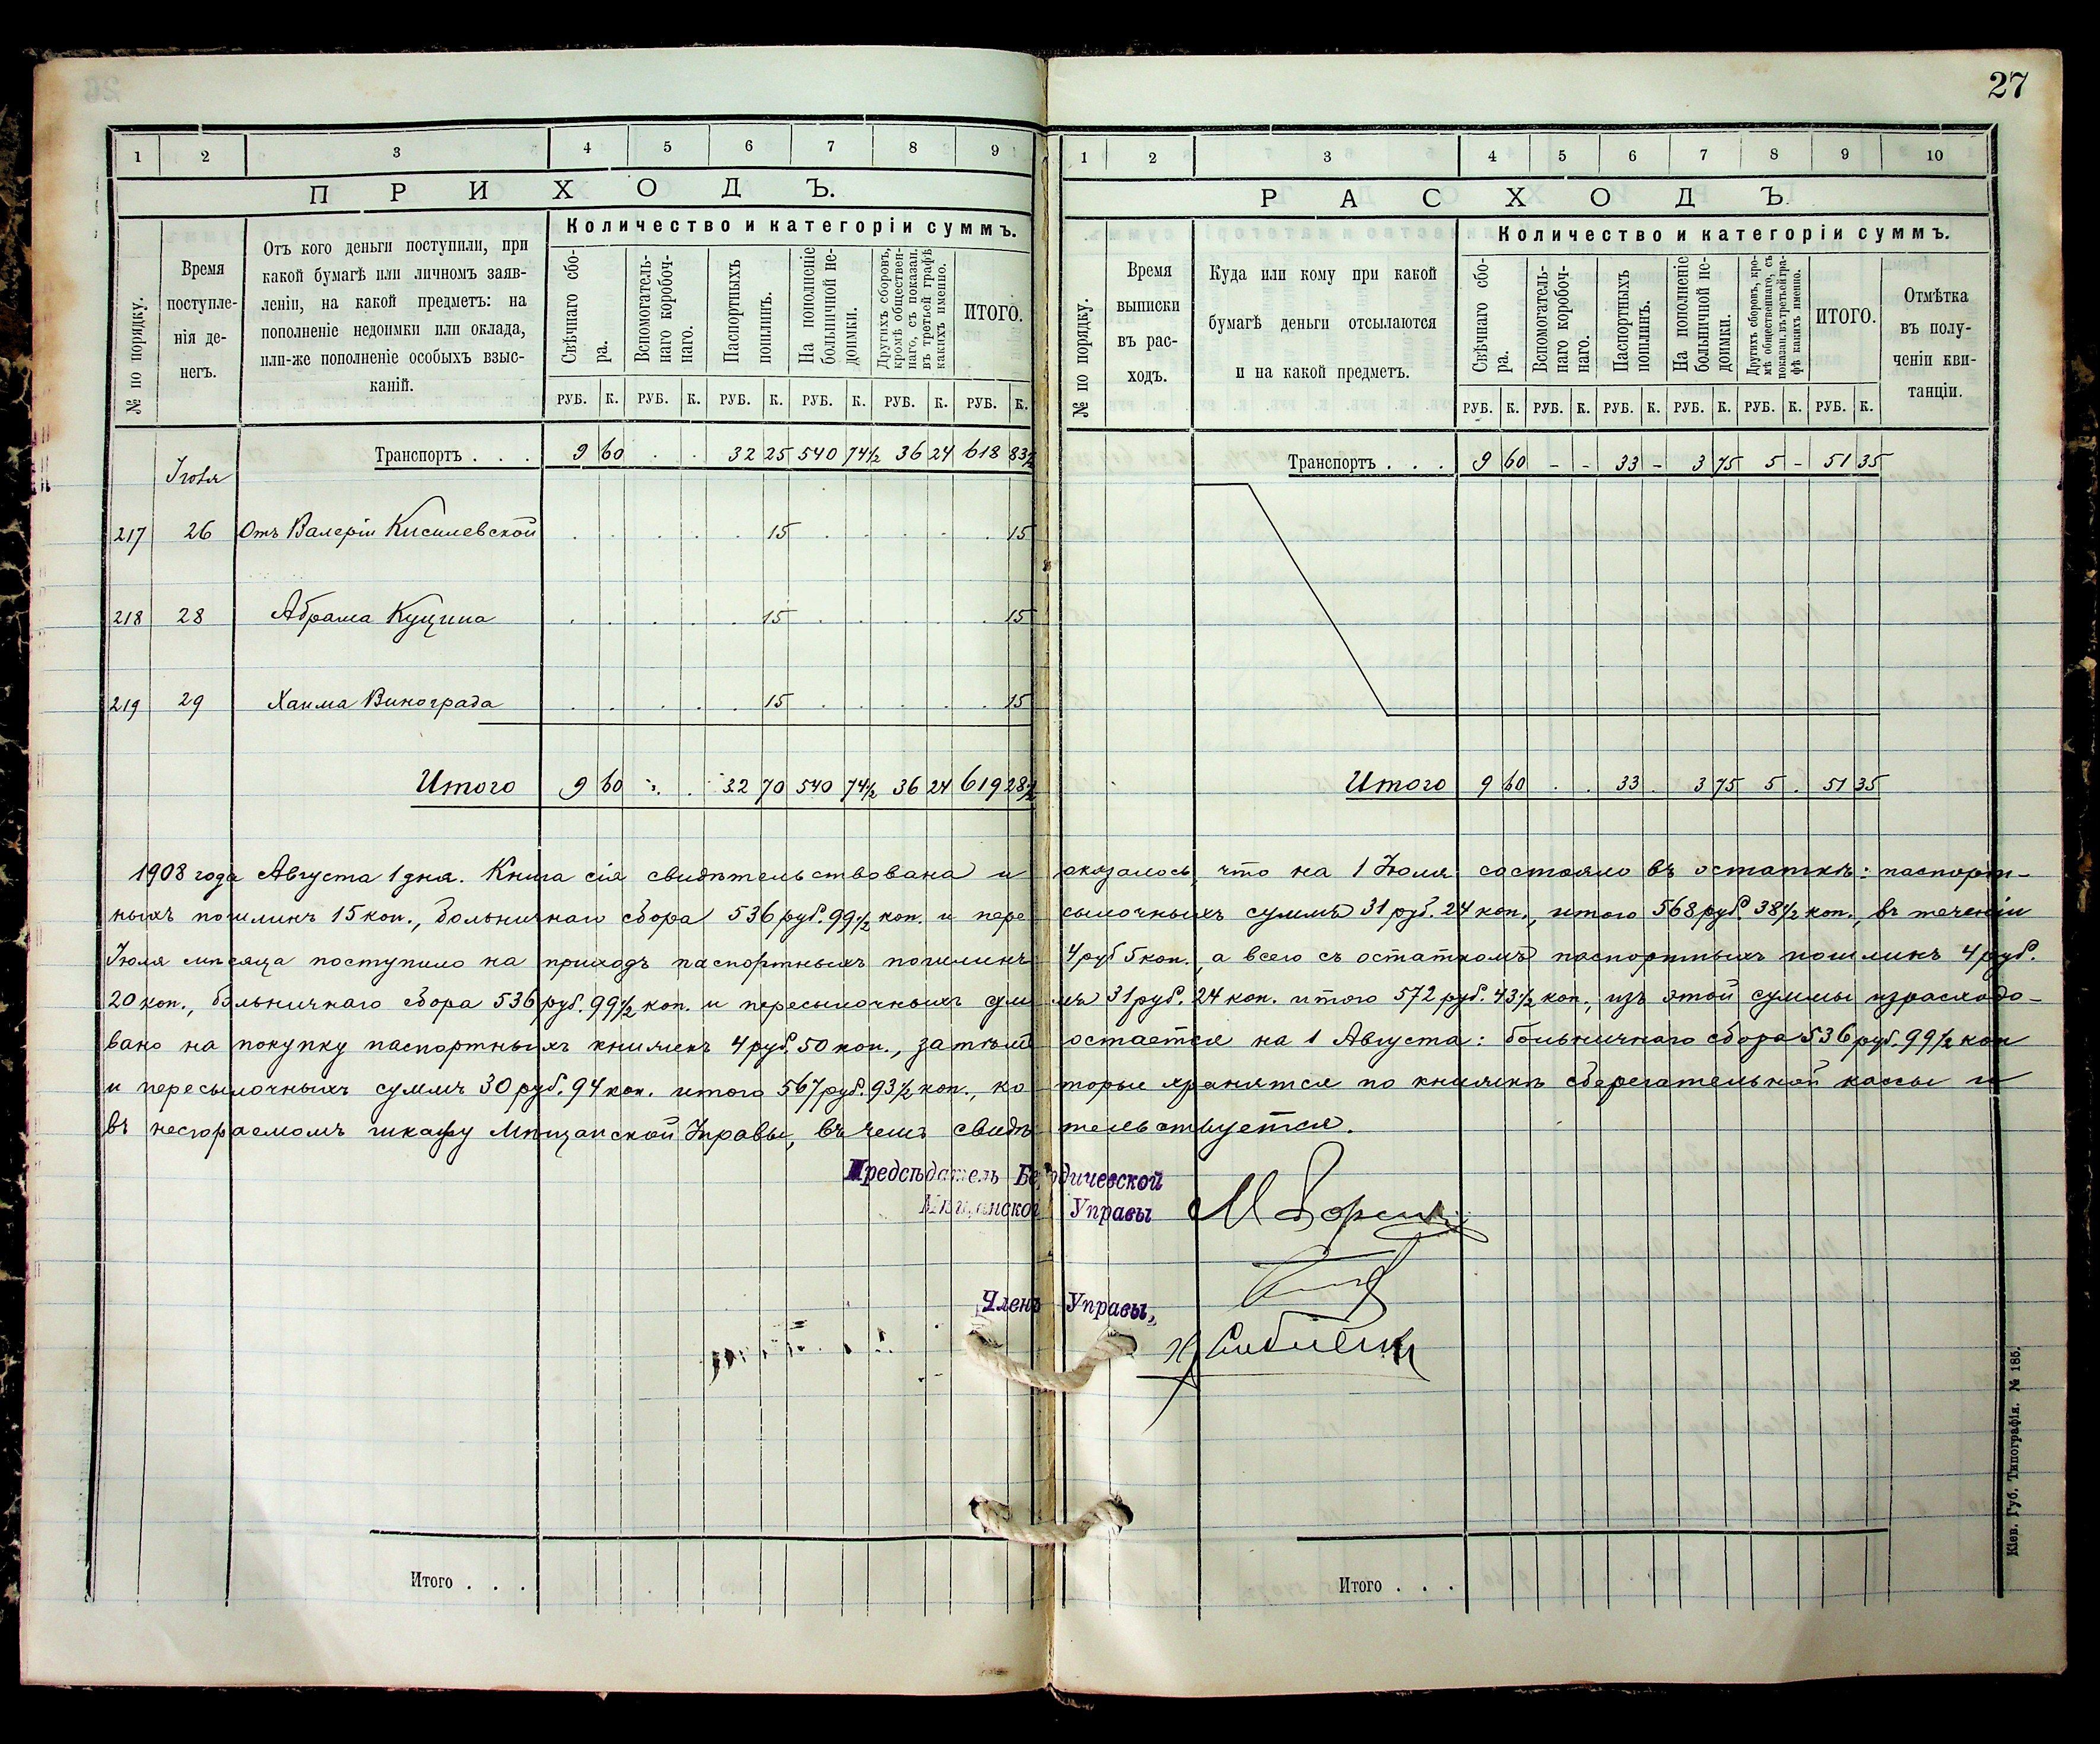 27
1 2 3 4 5 6 7 8 9
ПРИХОДЪ.
№ по порядку.
Время поступле-
нія де-
негъ.
Отъ кого деньги поступили, при
какой бумагѣ или личномъ заяв-
леніи, на какой предметъ: на
пополненіе недоимки или оклада,
или-же пополненіе особыхъ взыс-
каній.
Количество и категоріи суммъ.
Свѣчнаго сбо-
ра.
Вспомогатель-
наго коробоч-
наго.
Паспортныхъ
пошлинъ.
На пополненіе
больничной не-
доимки.
Другихъ сборовъ,
кромѣ обществен-
наго, съ показан.
въ третьей графѣ
какихъ именно.
ИТОГО.
РУБ. К. РУБ. К. РУБ. К. РУБ. К. РУБ. К. РУБ. К.
Транспортъ . . . 9 60 . . 32 25 540 74½ 36 24 618 83½
Іюля
217 26 Отъ Валеріи Кисилевской 15 15
218 28 Абрама Куцина 15 15
219 29 Хаима Винограда 15 15
Итого 9 60 . . 32 70 540 74½ 36 24 619 28½
1 2 3 4 5 6 7 8 9 10
РАСХОДЪ.
№ по порядку.
Время
выписки
въ рас-
ходъ.
Куда или кому при какой
бумагѣ деньги отсылаются
и на какой предметъ.
Количество и категоріи суммъ.
Свѣчнаго сбо-
ра.
Вспомогатель-
наго коробоч-
наго.
Паспортныхъ
пошлинъ.
На пополненіе
больничной не-
доимки.
Другихъ сборовъ, кро-
мѣ общественнаго, съ
показан. въ третьей гра-
фѣ какихъ именно.
ИТОГО.
Отмѣтка
въ полу-
ченіи кви-
танціи.
РУБ. К. РУБ. К. РУБ. К. РУБ. К. РУБ. К. РУБ. К.
Транспортъ . . . 9 60 - - 33 - 3 75 5 - 51 35
Итого 9 60 . . 33 . 3 75 5 . 51 35
1908 года Августа 1 дня. Книга сія свидѣтельствована и оказалось, что на 1 Іюля состояло въ остаткѣ: паспорт-
ныхъ пошлинъ 15 коп., больничнаго сбора 536 руб. 99½ коп. и пересылочныхъ суммъ 31 руб. 24 коп., итого 568 руб. 38½ коп., въ теченіи
Іюля мѣсяца поступило на приходъ паспортныхъ пошлинъ 4 руб 5 коп., а всего съ остаткомъ паспортныхъ пошлинъ 4 руб.
20 коп., больничнаго сбора 536 руб. 99½ коп. и пересылочныхъ суммъ 31 руб. 24 коп. итого 572 руб. 43½ коп., изъ этой суммы израсходо-
вано на покупку паспортныхъ книжекъ 4 руб. 50 коп., затѣмъ остается на 1 Августа: больничнаго сбора 536 руб. 99½ коп
и пересылочныхъ суммъ 30 руб. 94 коп. итого 567 руб. 93½ коп., которые хранятся по книжкѣ сберегательной кассы и
въ несгораемомъ шкафу Мѣщанской Управы, въ чемъ свидѣтельствуется.
Предсѣдатель Бердичевской
Мѣщанской Управы
Членъ Управы,
Итого . . .
Итого . . .
Кіев. Губ. Типографія. № 185.